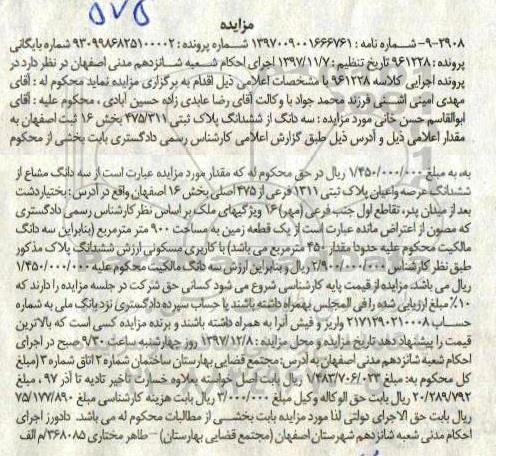 ۵۷۵
مزایده
۹-۲۹۰۸- شماره نامه : ۱۳۹۷۰۰۹۰۰۱۶۶۶۷۶۱ شماره پرونده : ۹۳۰۹۹۸۶۸۲۵۱۰۰۰۰۲ شماره بایگانی
پرونده : ۹۶۱۲۲۸ تاریخ تنظیم : ۱۳۹۷/۱۱/۷ اجرای احکام شعبه شانزدهم مدنی اصفهان در نظر دارد در
پرونده اجرایی کلاسه ۹۶۱۲۲۸ با مشخصات اعلامی ذیل اقدام به برگزاری مزایده نماید محکوم له : آقای
مهدی امینی اشنی فرزند محمد جواد با وکالت آقای رضا عابدی زاده حسین آبادی ، محکوم علیه : آقای
ابوالقاسم حسن خانی مورد مزایده : سه دانگ از ششدانگ پلاک ثبتی ۴۷۵/۳۱۱ بخش ۱۶ ثبت اصفهان به
مقدار اعلامی ذیل و آدرس ذیل طبق گزارش اعلامی کارشناس رسمی دادگستری بابت بخشی از محکوم
به، به مبلغ ۱/۴۵۰/۰۰۰/۰۰۰ در حق محکوم له که مقدار مورد مزایده عبارت است از سه دانگ مشاع از
ششدانگ عرصه واعیان پلاک ثبتی ۱۳۱۱ فرعی از ۴۷۵ اصلی بخش ۱۶ اصفهان واقع در آدرس : بختیاردشت
بعد از میدان پدر، تقاطع اول جنب فرعی (مهر) ۱۶ ویژگیهای ملک بر اساس نظر کارشناس رسمی دادگستری
که مصون از اعتراض مانده عبارت است از یک قطعه زمین به مساحت ۹۰۰ متر مترمربع (بنابراین سه دانگ
مالکیت محکوم علیه حدودا مقدار ۴۵۰ مترمربع می باشد) با کاربری مسکونی ارزش ششدانگ پلاک مذکور
طبق نظر کارشناس ۲/۹۰۰/۰۰۰/۰۰۰ ریال و بنابراین ارزش سه دانگ مالکیت محکوم علیه ۱/۴۵۰/۰۰۰/۰۰۰
ریال می باشد. مزایده از قیمت پایه کارشناسی شروع می شود کسانی حق شرکت در جلسه مزایده را دارند که
۱۰٪ مبلغ ارزیابی شده را فی المجلس بهمراه داشته باشند یا حساب سپرده دادگستری نزد بانک ملی به شماره
حساب ۲۱۷۱۲۹۰۲۱۰۰۰۸ واریز و فیش آنرا به همراه داشته باشند و برنده مزایده کسی است که بالاترین
قیمت را پیشنهاد دهد تاریخ مزایده و محل مزایده : ۱۳۹۷/۱۲/۸ روز چهارشنبه ساعت ۹/۳۰ صبح در اجرای
احکام شعبه شانزدهم مدنی اصفهان به آدرس: مجتمع قضایی بهارستان ساختمان شماره ۲ اتاق شماره ۳ (مبلغ
کل محکوم به: مبلغ ۱/۷۸۳/۷۰۶/۰۳۳ ریال بابت اصل خواسته بعلاوه خسارت تاخیر تادیه تا آذر ۹۷ ، مبلغ
۲۰/۲۸۹/۷۹۲ ریال بابت حق الوکاله وکیل مبلغ ۳/۰۰۰/۰۰۰ ریال بابت هزینه کارشناسی مبلغ ۷۵/۱۷۷/۸۹۰
ریال بابت حق الاجرای دولتی لذا مورد مزایده بابت بخشی از مطالبات محکوم له می باشد. دادورز اجرای
احکام مدنی شعبه شانزدهم شهرستان اصفهان (مجتمع قضایی بهارستان) –طاهر مختاری ۳۶۸۰۸۵/م الف